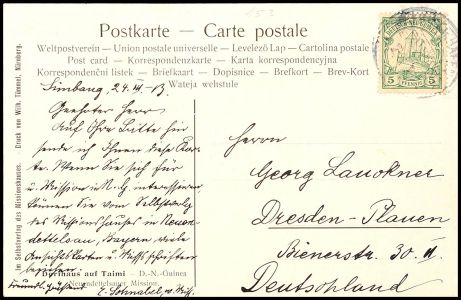 Postkarte — Carte postale
Weltpostverein — Union postale universelle — Levelező Lap — Cartolina postale
Post card — Korrespondenzkarte — Karta korrespondencyjna
Korespondenční lístek — Briefkaart — Dopisnice — Brefkort — Brev-Kort
Simbang, 24. VI. 13.
Geehrter Herr
Auf Ihre Bitte hin
sende ich Ihnen diese Kar-
te. Wenn Sie sich für
u. Mission in N. G. interessieren,
können Sie vom Selbstverlg
des Missionshauses in Neuen-
dettelsau, Bayern, viele
Ansichtskarten u. Missionsschriften
beziehen.
Freundl. grüssend
E. Schnabel, Miss.
Dorfhaus auf Taimi — D.-N.-Guinea
Neuendettelsauer Mission.
Im Selbstverlag des Missionshauses. Druck von Wilh. Tümmel, Nürnberg.
5 PFENNIG 5
Herrn
Georg Lauckner
Dresden-Plauen
Bienerstr. 30. II.
Deutschland